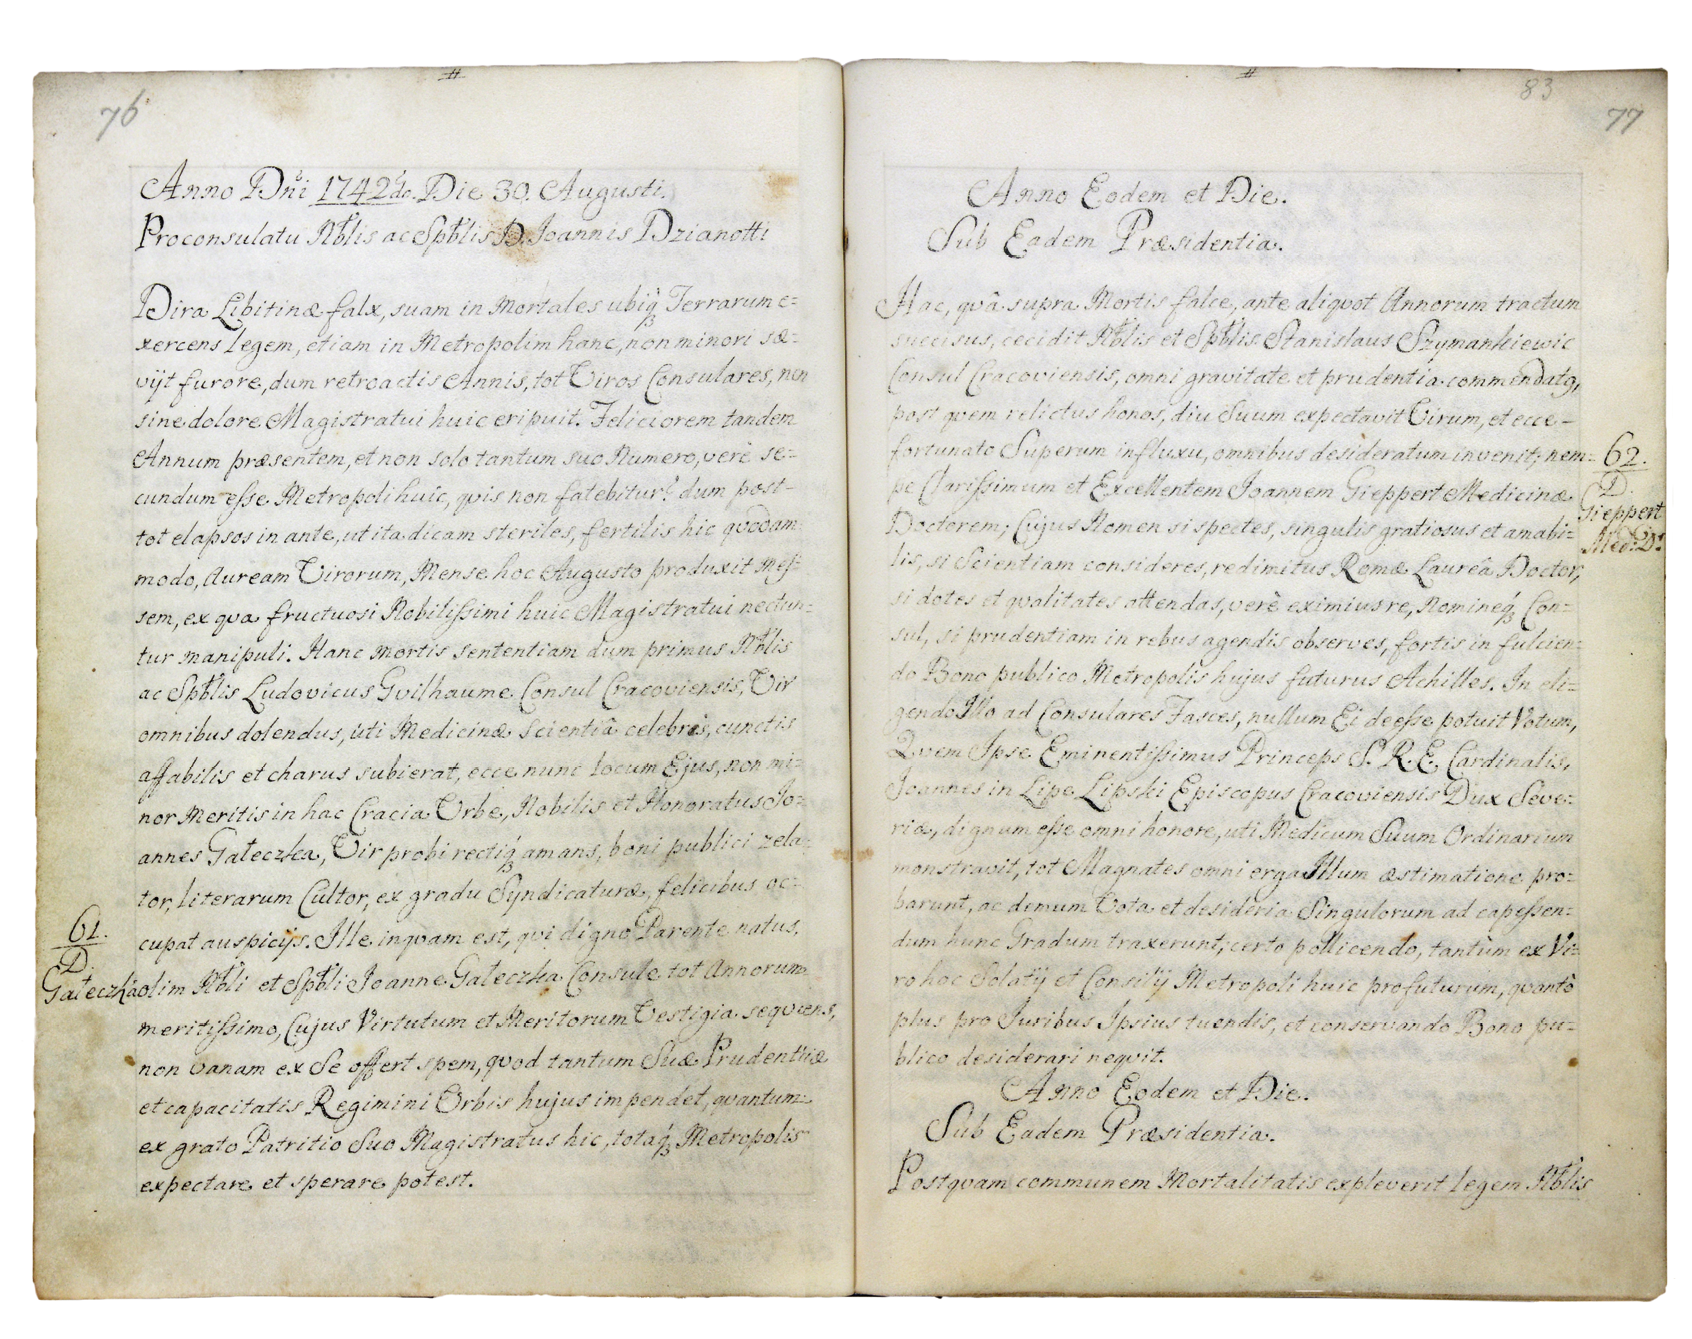 76
Anno Dñi 1742do. Die 30. Augusti.
Proconsulatu Nblis ac Spblis D. Joannis Dzianotti
Dira Libitinæ falx, suam in Mortales ubiq₃ Terrarum e=
xercens Legem, etiam in Metropolim hanc, non minori sæ=
vijt furore, dum retroactis Annis, tot Viros Consulares, non
sine dolore Magistratui huic eripuit. Feliciorem tandem
Annum præsentem, et non solo tantum suo Numero, verè se=
cundum esse Metropoli huic, quis non fatebitur? dum post-
tot elapsos in ante, ut ita dicam steriles, fertilis hic quodam=
modo, Auream Virorum, Mense hoc Augusto produxit Mes=
sem, ex qva fructuosi Nobilissimi huic Magistratui nectun=
tur manipuli. Hanc Mortis sententiam dum primus Nblis
ac Spblis Ludovicus Gvilhaume Consul Cracoviensis, Vir
omnibus dolendus, uti Medicinæ scientiâ celebris, cunctis
affabilis et charus subierat, ecce nunc locum Ejus, non mi=
nor Meritis in hac Cracia Urbe, Nobilis et Honoratus Jo=
annes Gałeczka, Vir probi rectiq₃ amans, boni publici zela=
tor, literarum Cultor, ex gradu Syndicaturæ, felicibus oc=
cupat auspicijs. Ille inqvam est, qvi digno Parente natus,
61.
D.
Gałeczka
olim Nbli et Spbli Joanne Gałeczka Consule tot Annorum
meritissimo, Cujus Virtutum et Meritorum Vestigia seqviens,
non vanam ex Se offert spem, qvod tantum Suæ Prudentiæ
et capacitatis Regimini Orbis hujus impendet, qvantum=
ex grato Patritio Suo Magistratus hic, totaq₃ Metropolis
expectare et sperare potest.
83
77
Anno Eodem et Die.
Sub Eadem Præsidentia.
Hac, qvâ supra Mortis falce, ante aliqvot Annorum tractum
succisus, cecidit Nblis et Spblis Stanislaus Szymankiewic
Consul Cracoviensis, omni gravitate et prudentia commendatq,
post qvem relictus honos, diu Suum expectavit Virum, et ecce -
fortunato Superum influxu, omnibus desideratum invenit; nem=
pe Clarissimum et Excellentem Joannem Gieppert Medicinæ
62.
D.
Gieppert
Med: Dr.
Doctorem; Cujus Nomen si spectes, singulis gratiosus et amabi=
lis, si Scientiam consideres, redimitus Romæ Laureâ Doctor,
si dotes et qvalitates attendas, verè eximius re, Nomineq₃ Con=
sul, si prudentiam in rebus agendis observes, fortis in fulcien=
do Bono publico Metropolis hujus futurus Achilles. In eli=
gendo Illo ad Consulares Fasces, nullum Ei deesse potuit Votum,
Qvem Ipse Eminentissimus Princeps S. R. E. Cardinalis,
Joannes in Lipe Lipski Episcopus Cracoviensis Dux Seve=
riæ, dignum esse omni honore, uti Medicum Suum Ordinarium
monstravit, tot Magnates omni erga Illum æstimatione pro=
barunt, ac demum Vota et desideria Singulorum ad capessen=
dum hunc Gradum traxerunt; certo pollicendo, tantùm ex Vi=
ro hoc Solatij et Consilij Metropoli huic profuturum, qvantò
plus pro Juribus Ipsius tuendis, et conservando Bono pu=
blico desiderari neqvit.
Anno Eodem et Die.
Sub Eadem Præsidentia.
Postqvam communem Mortalitatis expleverit legem Nblis